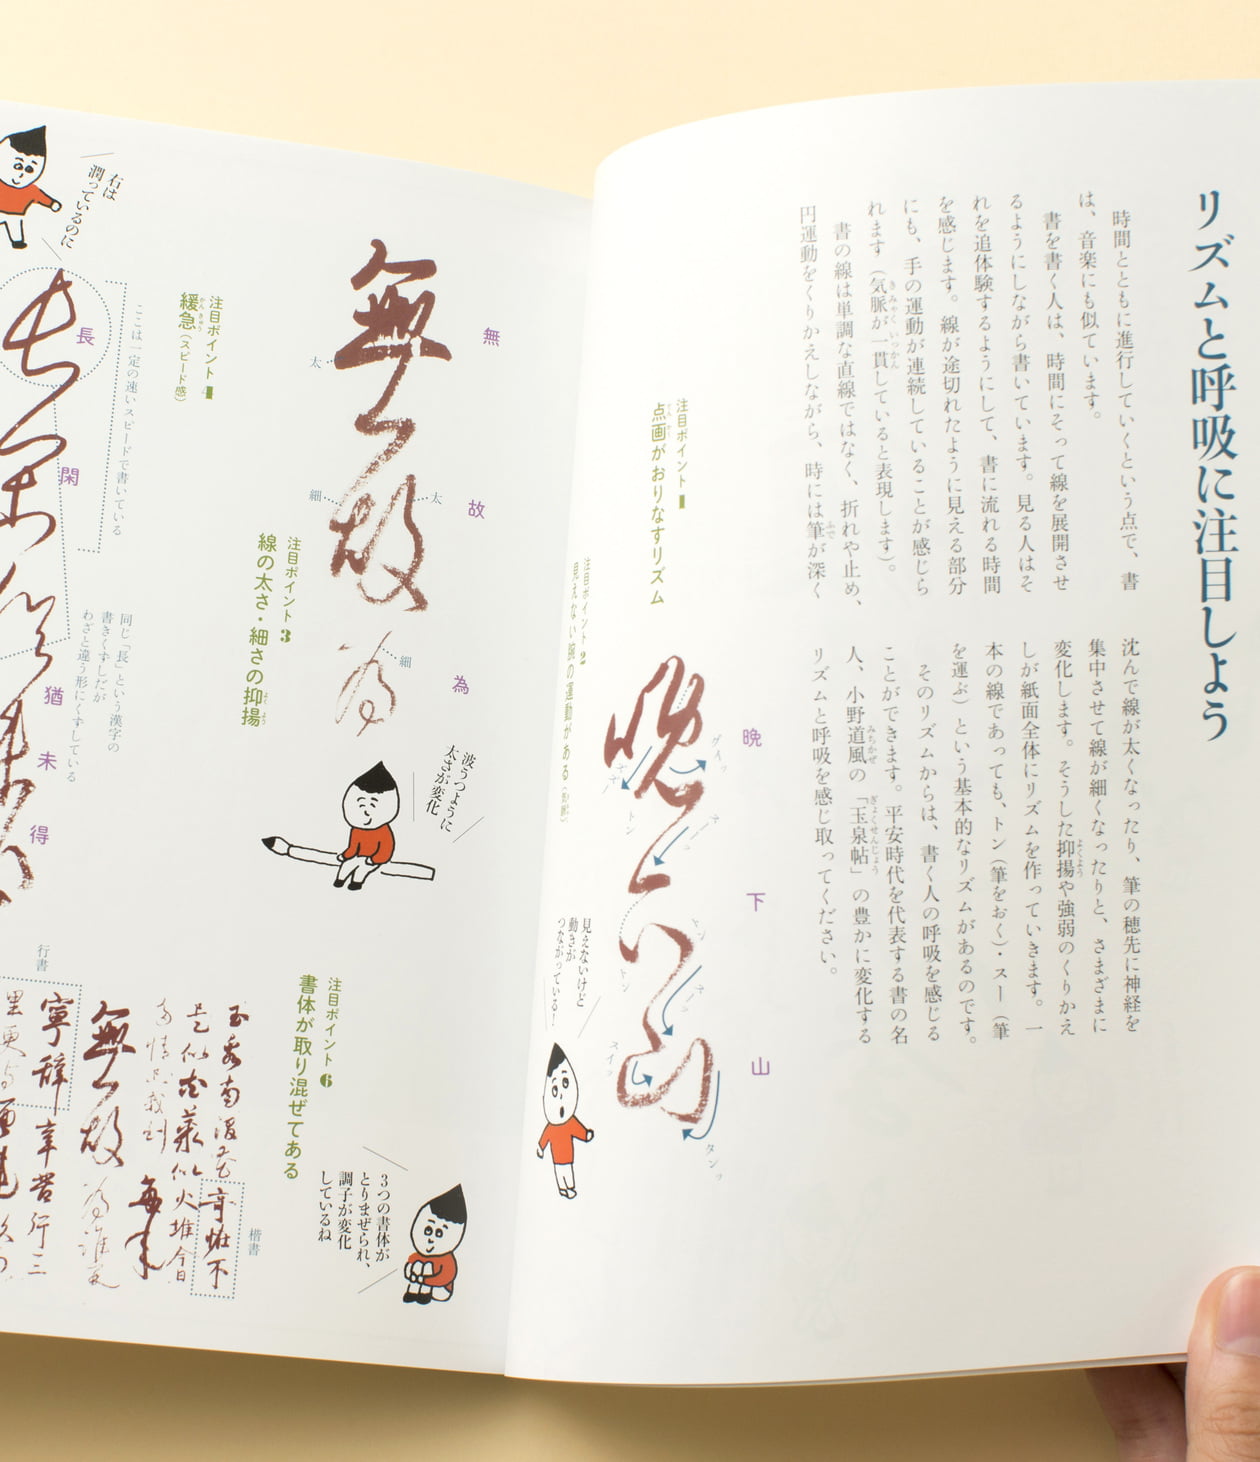 リズムと呼吸に注目しよう
時間とともに進行していくという点で、書
は、音楽にも似ています。
書を書く人は、時間にそって線を展開させ
るようにしながら書いています。見る人はそ
れを追体験するようにして、書に流れる時間
を感じます。線が途切れたように見える部分
にも、手の運動が連続していることが感じら
れます（気脈が一貫していると表現します）。
書の線は単調な直線ではなく、折れや止め、
円運動をくりかえしながら、時には筆が深く
沈んで線が太くなったり、筆の穂先に神経を
集中させて線が細くなったりと、さまざまに
変化します。そうした抑揚や強弱のくりかえ
しが紙面全体にリズムを作っていきます。一
本の線であっても、トン（筆をおく）・スー（筆
を運ぶ）という基本的なリズムがあるのです。
そのリズムからは、書く人の呼吸を感じる
ことができます。平安時代を代表する書の名
人、小野道風の「玉泉帖」の豊かに変化する
リズムと呼吸を感じ取ってください。
注目ポイント1
点画がおりなすリズム
晩
下
山
グイッ
トン
スーッ
トン
スーッ
スイッ
タンッ
注目ポイント2
見えない腕の運動がある
見えないけど
動きが
つながっている！
無
故
為
太
細
太
細
波うつように
太さが変化
注目ポイント3
線の太さ・細さの抑揚
注目ポイント4
緩急（スピード感）
ここは一定の速いスピードで書いている
右は
潤っているのに
長
閑
猶
未
得
同じ「長」という漢字の
書きくずしだが
わざと違う形にくずしている
注目ポイント6
書体が取り混ぜてある
3つの書体が
とりまぜられ、
調子が変化
しているね
楷書
行書